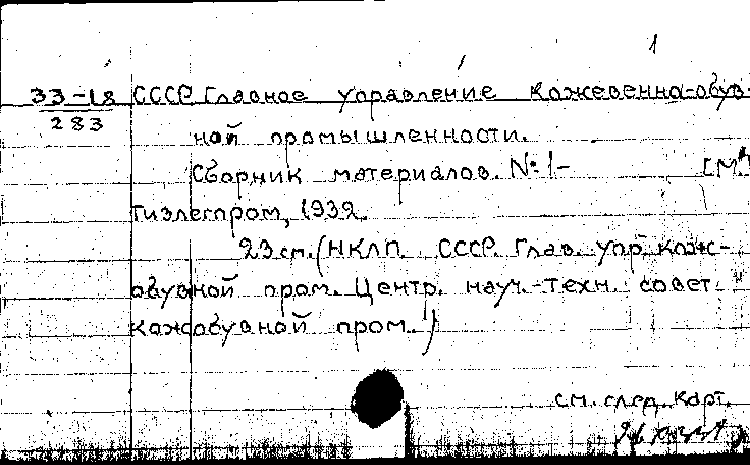 1
33-18 СССР. Главное управление кожевенно-обув-
283
ной промышленности.
Сборник материалов. №1-
Гизлегпром, 1932.
23 см. (НКЛП. СССР. Глав. упр. кож-
обувной пром. Центр. науч.-техн. совет.
кожобувной пром.)
см. след. карт.